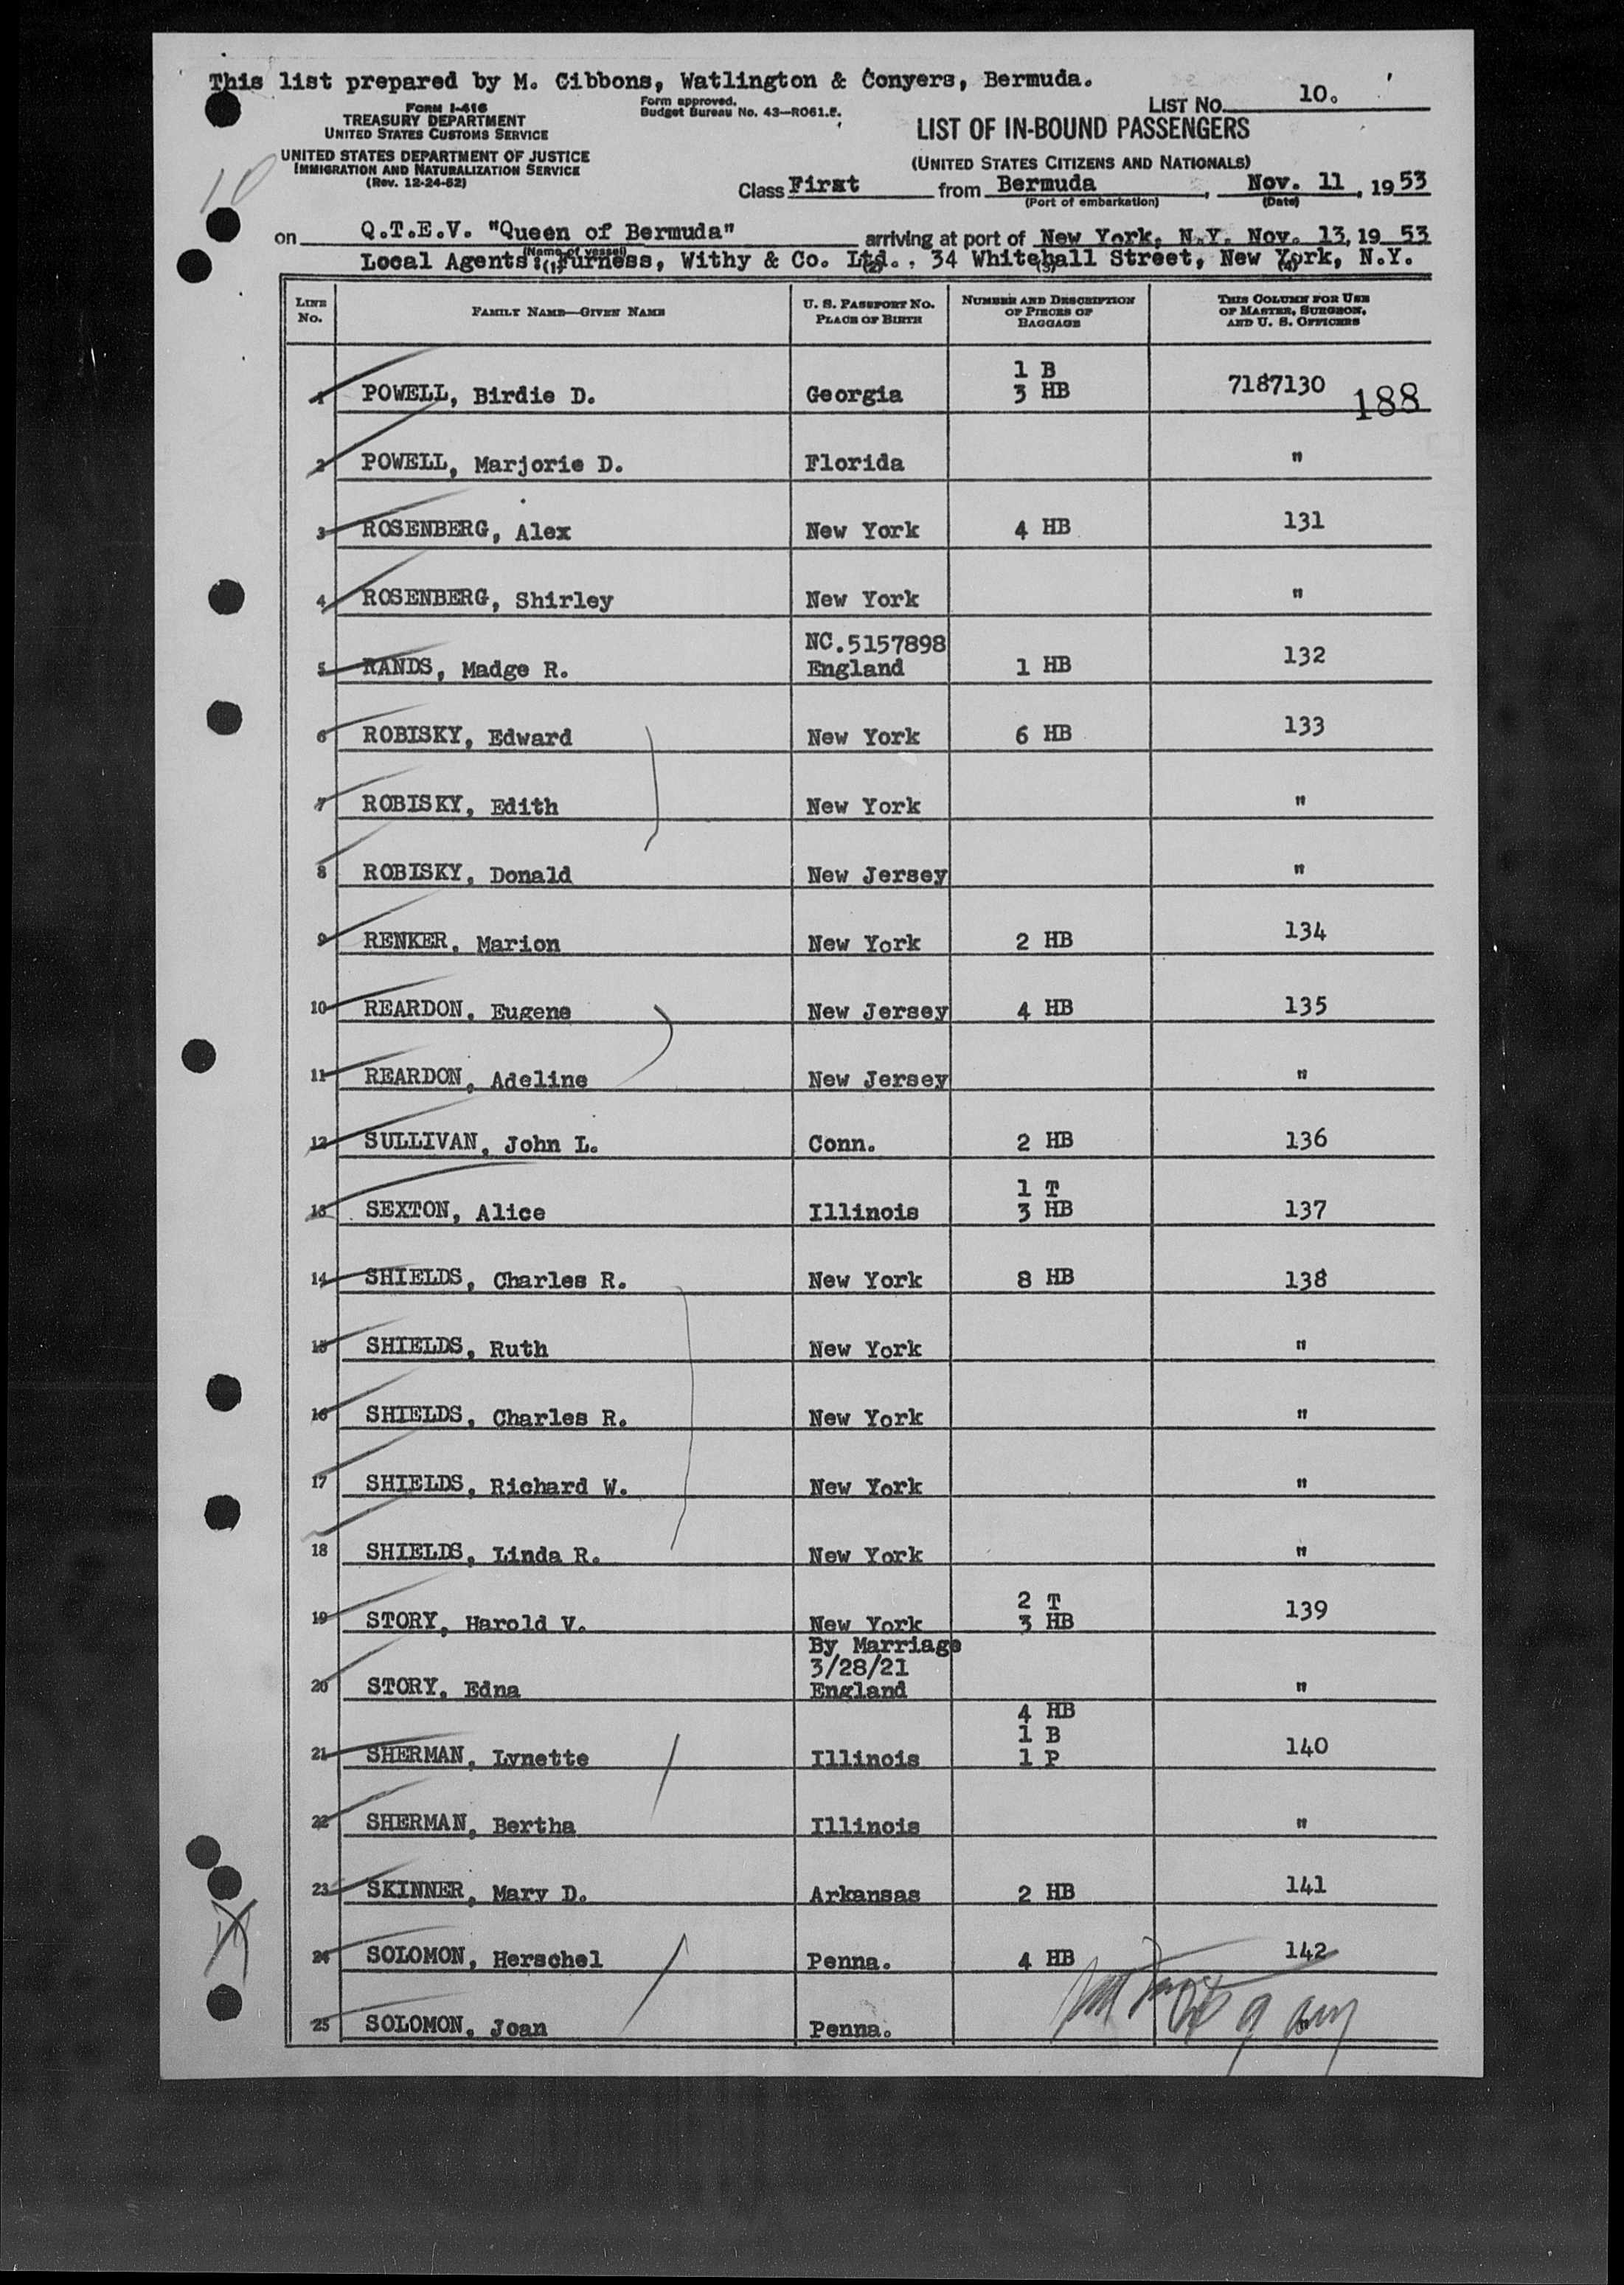 This list prepared by M. Gibbons, Watlington & Conyers, Bermuda.
LIST No. 10.
FORM I-416
TREASURY DEPARTMENT
UNITED STATES CUSTOMS SERVICE
Form approved.
Budget Bureau No. 43—RO61.5.
LIST OF IN-BOUND PASSENGERS
UNITED STATES DEPARTMENT OF JUSTICE
IMMIGRATION AND NATURALIZATION SERVICE
(Rev. 12-24-52)
10
(UNITED STATES CITIZENS AND NATIONALS)
Class First from Bermuda, Nov. 11, 1953
(Port of embarkation) (Date)
on Q.T.E.V. "Queen of Bermuda" arriving at port of New York, N.Y. Nov. 13, 1953
(Name of vessel)
Local Agents: Furness, Withy & Co. Ltd., 34 Whitehall Street, New York, N.Y.
(1) (2) (3) (4)
LINE No. FAMILY NAME—GIVEN NAME U. S. PASSPORT No. PLACE OF BIRTH NUMBER AND DESCRIPTION OF PIECES OF BAGGAGE THIS COLUMN FOR USE OF MASTER, SURGEON, AND U. S. OFFICERS
1 POWELL, Birdie D. Georgia 1 B 3 HB 7187130 188
2 POWELL, Marjorie D. Florida "
3 ROSENBERG, Alex New York 4 HB 131
4 ROSENBERG, Shirley New York "
5 RANDS, Madge R. NC.5157898 England 1 HB 132
6 ROBISKY, Edward New York 6 HB 133
7 ROBISKY, Edith New York "
8 ROBISKY, Donald New Jersey "
9 RENKER, Marion New York 2 HB 134
10 REARDON, Eugene New Jersey 4 HB 135
11 REARDON, Adeline New Jersey "
12 SULLIVAN, John L. Conn. 2 HB 136
13 SEXTON, Alice Illinois 1 T 3 HB 137
14 SHIELDS, Charles R. New York 8 HB 138
15 SHIELDS, Ruth New York "
16 SHIELDS, Charles R. New York "
17 SHIELDS, Richard W. New York "
18 SHIELDS, Linda R. New York "
19 STORY, Harold V. New York 2 T 3 HB 139
20 STORY, Edna By Marriage 3/28/21 England "
21 SHERMAN, Lynette Illinois 4 HB 1 B 1 P 140
22 SHERMAN, Bertha Illinois "
23 SKINNER, Mary D. Arkansas 2 HB 141
24 SOLOMON, Herschel Penna. 4 HB 142
25 SOLOMON, Joan Penna. "